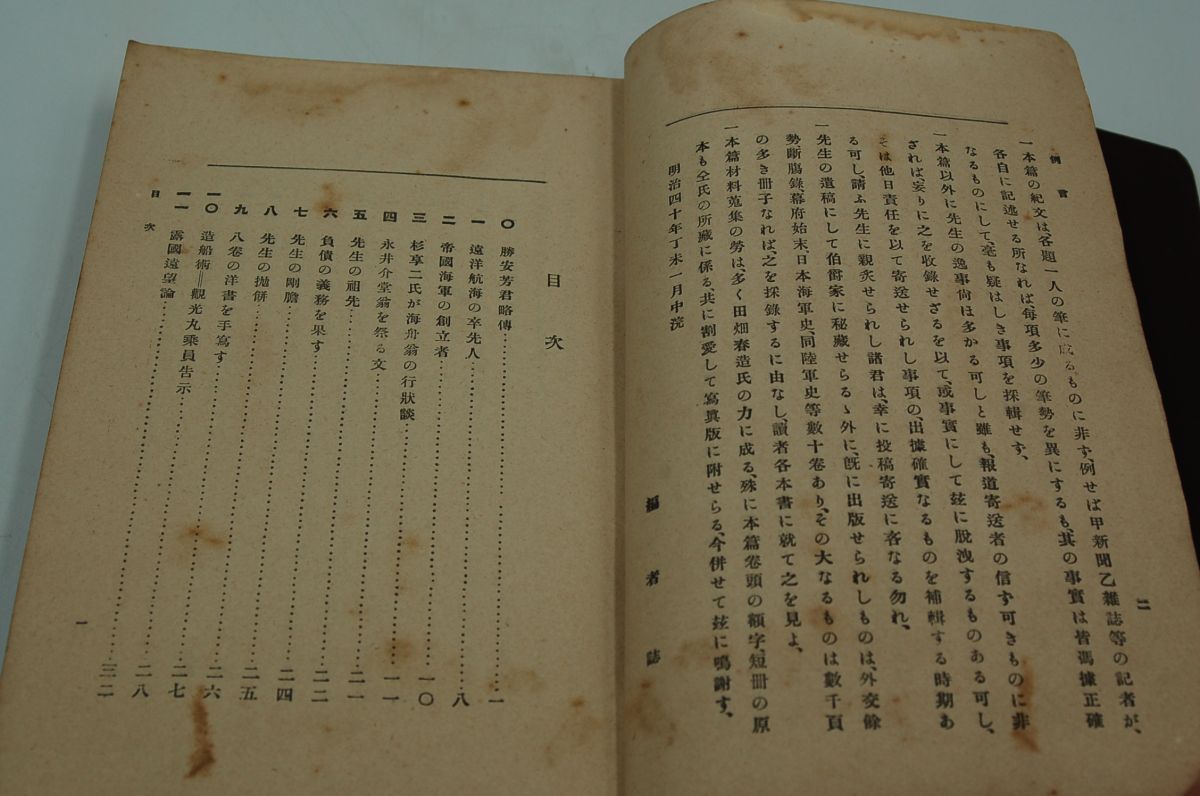 例言
二
一本篇の紀文は、各題一人の筆に成るものに非ず、例せば甲新聞乙雜誌等の記者が、
各自に記述せる所なれば、毎項多少の筆勢を異にするも、其の事實は皆馮據正確
なるものにして、毫も疑はしき事項を採輯せず、
一本篇以外に先生の逸事尙ほ多かる可しと雖も、報道寄送者の信ず可きものに非
ざれば、妄りに之を收錄せざるを以て、或事實にして玆に脫洩するものある可し、
そは他日責任を以て寄送せられし事項の、出據確實なるものを補輯する時期あ
る可し、請ふ先生に親炙せられし諸君は、幸に投稿寄送に吝なる勿れ、
一先生の遺稿にして伯爵家に秘藏せらるゝ外に、既に出版せられしものは、外交餘
勢、斷膓錄、幕府始末、日本海軍史、同陸軍史等數十卷あり、その大なるものは數千頁
の多き冊子なれば、之を採錄するに由なし、讀者各本書に就て之を見よ、
一本篇材料蒐集の勞は、多く田畑春造氏の力に成る、殊に本篇卷頭の額字、短冊の原
本も仝氏の所藏に係る、共に割愛して寫眞版に附せらる、今併せて玆に鳴謝す、
明治四十年丁未一月中浣
編者誌
目次
〇 勝安芳君略傳……一
一 遠洋航海の卒先人……八
二 帝國海軍の創立者
三 杉享二氏が海舟翁の行狀談……一〇
四 永井介堂翁を祭る文……一一
五 先生の祖先……二一
六 負債の義務を果す……二二
七 先生の剛膽……二四
八 先生の拋餅……二五
九 八卷の洋書を手寫す……二六
一〇 造船術＝觀光丸乘員告示……二七
一一 露國遠望論……二八
三二
目次
一